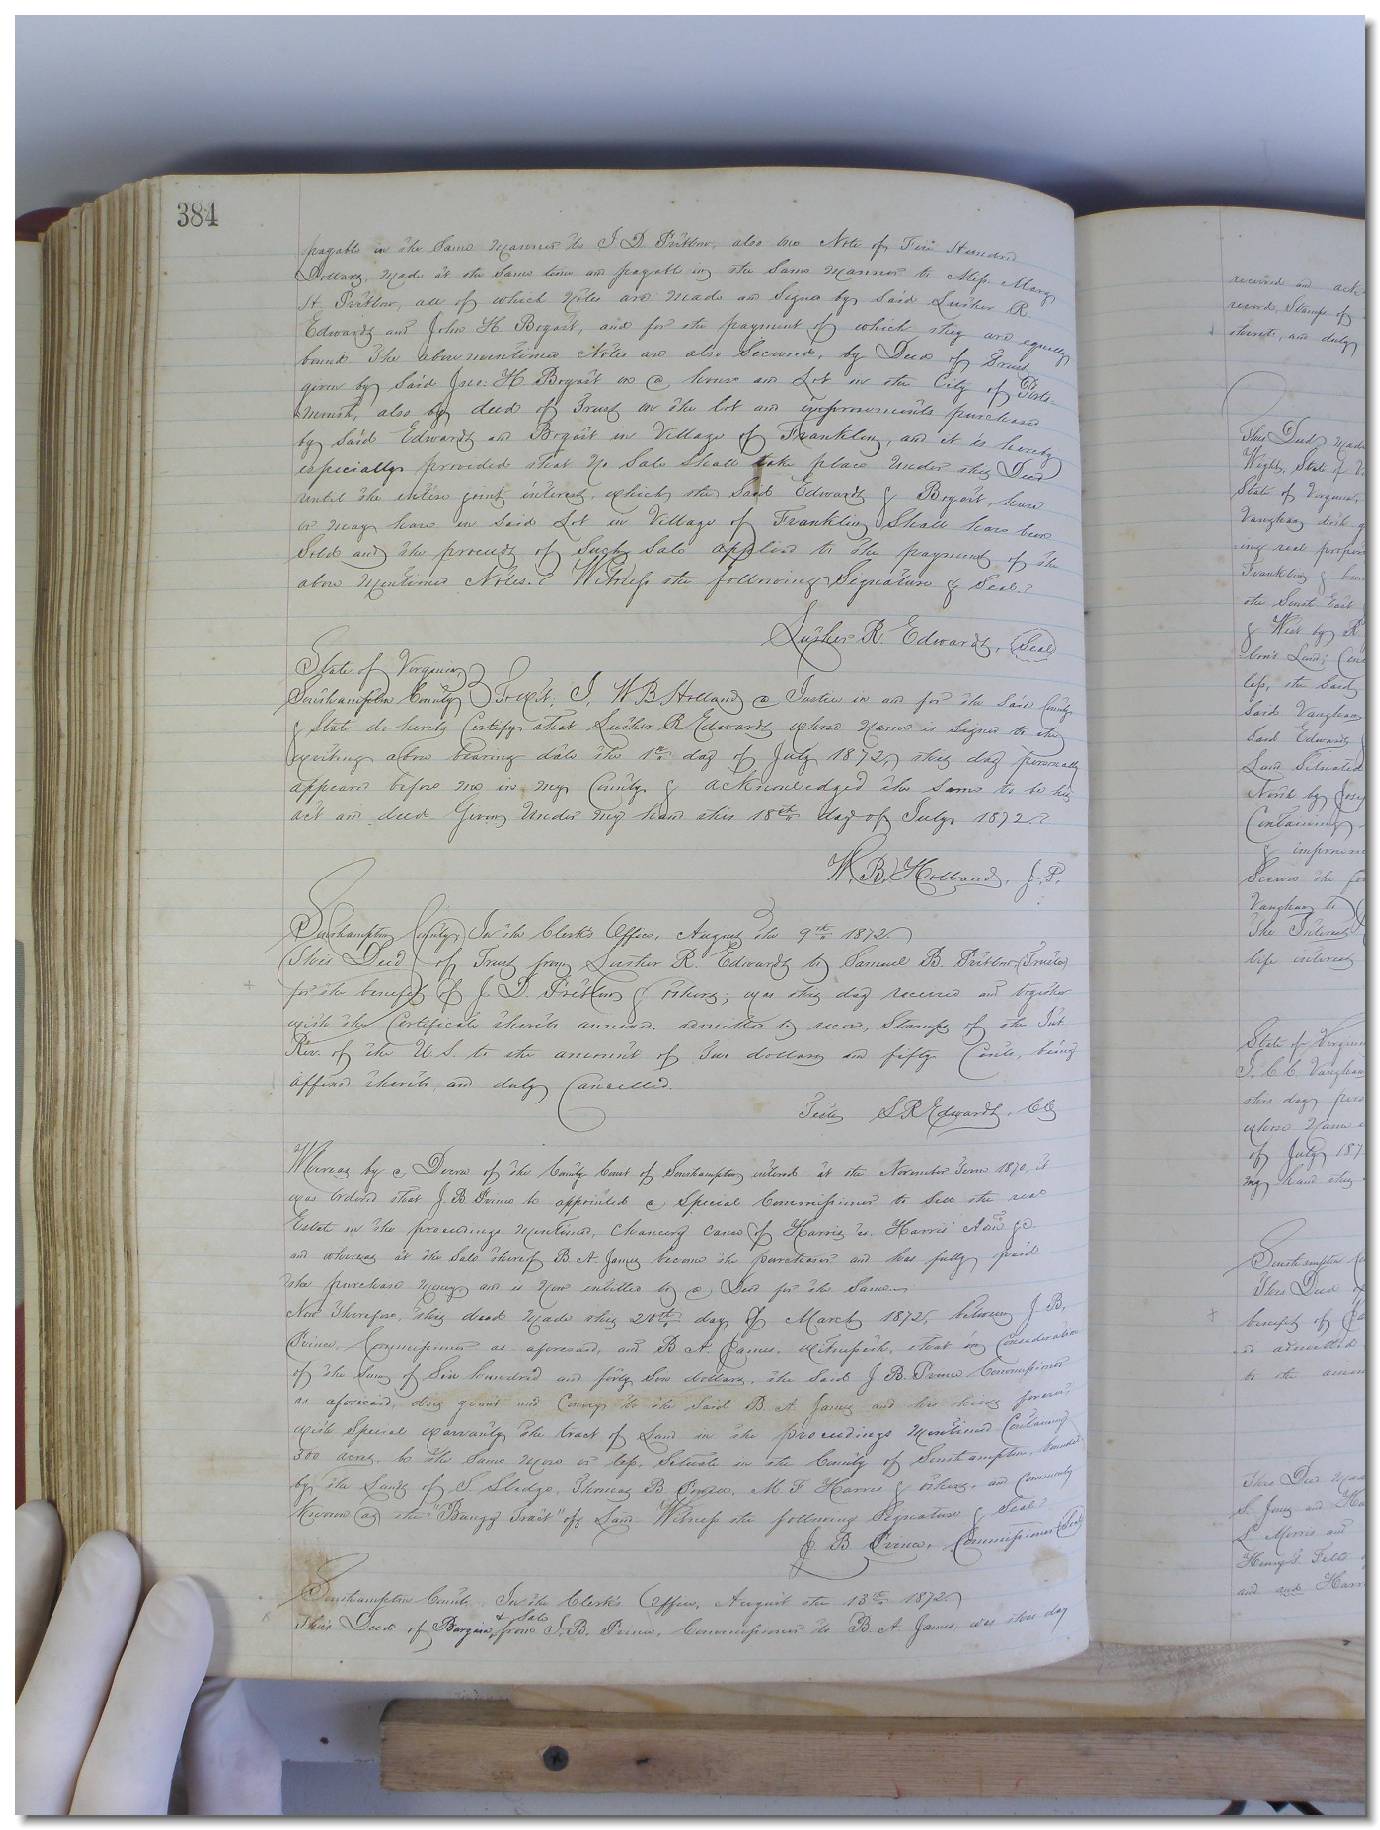 384
payable in the Same Manner to J D. Pretlow, also one Note of Five Hundred
Dollars, Made at the Same time and payable in the Same Manner to Miss Mary
H. Pretlow, all of which Notes are Made and Signed by Said Luther R.
Edwards and John H Bogart, and for the payment of which they are equally
bound The above mentioned Notes are also Secured, by Deed of Trust
given by Said Jno: H Bogart on a house and Lot in the City of Ports-
mouth, also by deed of Trust on the lot and improvements purchased
by Said Edwards and Bogart in Village of Franklin, and it is hereby
especially provided that No Sale Shall take place Under this Deed
until the entire joint interest, which the Said Edwards & Bogart, have
or may have in Said Lot in Village of Franklin Shall have been
Sold and the proceeds of Such Sale applied to the payment of the
above Mentioned Notes. Witness the following Signature & Seal.
Luther R. Edwards, Seal
State of Virginia
Southampton County To wit: I, W B Holland a Justice in and for the Said County
& State do hereby Certify that Luther R Edwards whose Name is Signed to the
writing above bearing date the 1st day of July 1872, this day personally
appeared before me in my County & acknowledged the same to be his
act and deed Given Under my hand this 18th day of July, 1872.
W. B. Holland, J. P.
Southampton County, In the Clerk's Office, August the 9th 1872.
This Deed of Trust from Luther R. Edwards to Samuel B. Pretlow (Trustee)
for the benefit of J. D. Pretlow & others, was this day received and together
with the Certificate thereto annexed admitted to record, Stamps of the Int
Rev. of the U. S. to the amount of Two dollars and fifty Cents, being
affixed thereto, and duly Cancelled.
Teste S R Edwards, CC
Whereas by a Decree of the County Court of Southampton entered at the November Term 1870, it
was ordered that J. B Prince be appointed a Special Commissioner to Sell the real
Estate in the proceedings Mentioned, Chancery Cause of Harris vs. Harris' Admr &c
and whereas at the Sale thereof B. A. James became the purchaser and has fully paid
the purchase Money and is Now entitled to a Deed for the Same
Now Therefore, this deed Made this 20th day of March 1872, between J. B.
Prince, Commissioner as aforesaid, and B A. James, witnesseth, that in Consideration
of the Sum of Six hundred and forty dollars, the Said J B. Prince Commissioner
as aforesaid, doth grant and Convey to the Said B. A James and his heirs forever,
with Special warranty the tract of Land in the proceedings Mentioned Containing
300 acres, be the Same More or less, Situate in the County of Southampton, bounded
by the Lands of S. Sledge, Thomas B. M. F Harris & others, and Commonly
Known as the "Bangs Tract" of Land Witness the following Signature & Seal
J B Prince, Commissioner Seal
Southampton County In the Clerk's Office, August the 13th 1872
& Sale
This Deed of Bargain from J. B. Prince, Commissioner to B. A James, was this day
received and ack
record, Stamps of
thereto, and duly
This Deed Made
Wight, State of V
State of Virginia,
Vaughan doth g
ing real proper
Franklin & bou
the South East
& West by R
Said Vaughan
Said Edwards
Land Situated
North by Jos
Containing
& improvem
Secure the fo
Vaughan to
The Interest
life interest
State of Virginia
J. C C Vaughan
this day pers
whose Name
of July 187
my hand this
Southampton
This Deed of
benefit of
to the amou
This Deed Made
S. Jones and Ha
L Morris and
Henry T Felts
and and Harr